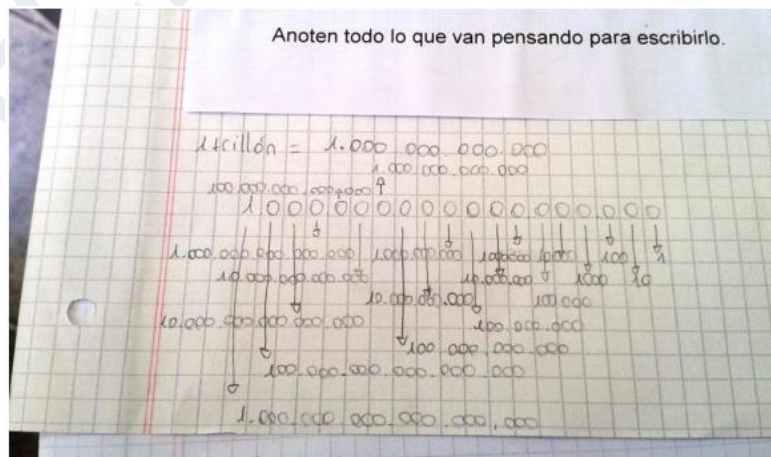 Anoten todo lo que van pensando para escribirlo.
= 1.000 000 000.000
1.000.000.000.000
100.000.000.000.000
1 0 0 0 0 0 0 0 0 0 0 0 0 0 0 0 0 0 0
1.000.000.000.000.000 1.000.000.000 1.000.000 10.000 100 1
10.000.000.000.000 10.000.000 1000 10
10.000.000.000 100.000
10.000.000.000.000.000 100.000.000
100.000.000.000
100.000.000.000.000.000
1.000.000.000.000.000.000